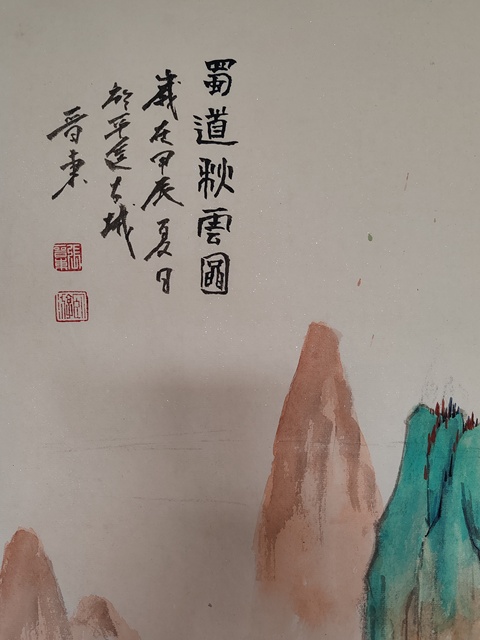 蜀道秋雲圖
歲在甲辰夏日
於平遥古城
晋東